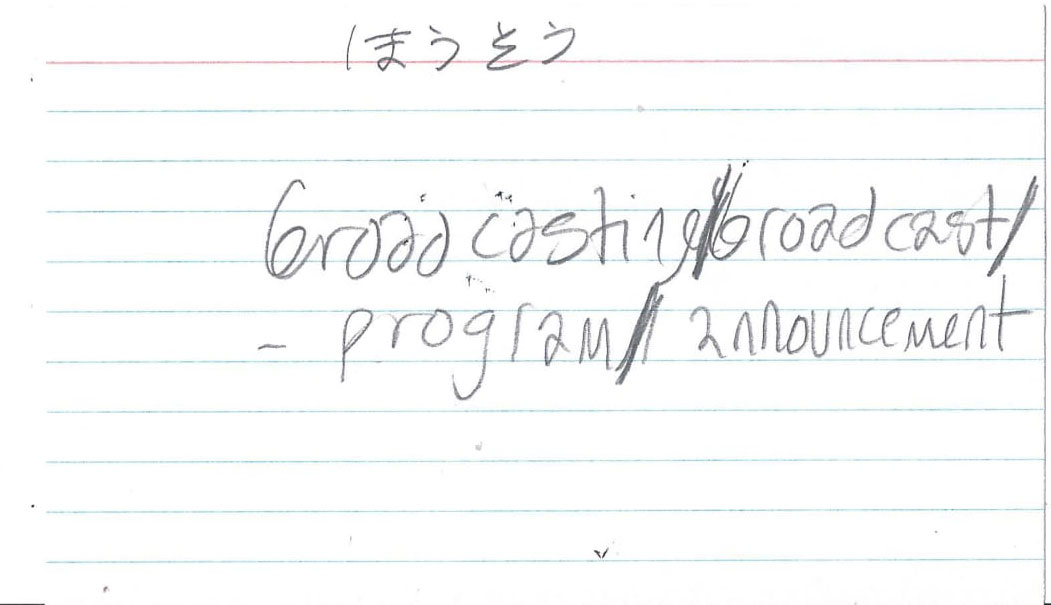 ほうそう
broadcasting/broadcast/
- program/ announcement